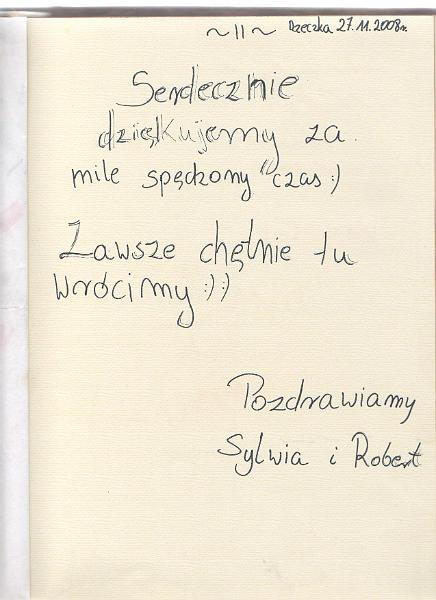 ~ 11 ~ Rzeczka 27.11.2008r.
Serdecznie
dziękujemy za
mile spędzony czas :)
Zawsze chętnie tu
wrócimy :) :)
Pozdrawiamy
Sylwia i Robert